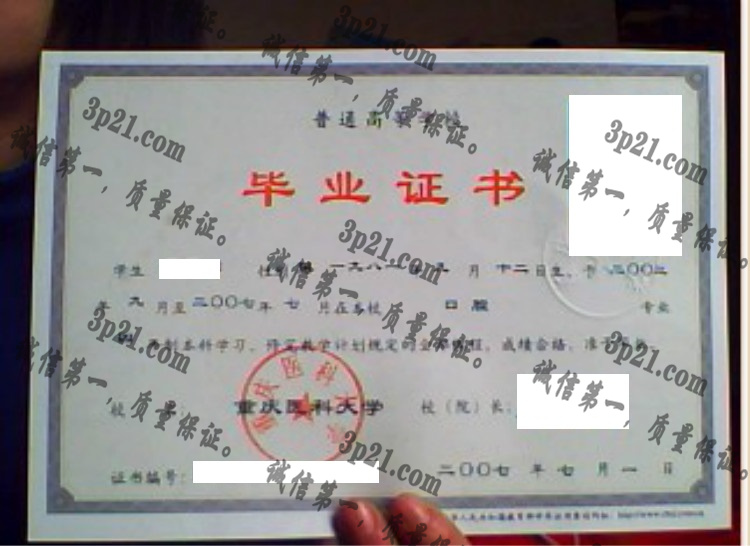 普通高等学校
毕业证书
学生 性别 一九八二年 月 十二日生，于 二〇〇二
年 九 月至 二〇〇七 年 七 月在本校 口腔 专业
制本科学习，修完教学计划规定的全部课程，成绩合格，准予毕业。
校 重庆医科大学 校（院）长：
证书编号： 二〇〇七 年 七 月 一 日
重庆医科大学
3p21.com
诚信第一，质量保证。
3p21.com
诚信第一，质量保证。
3p21.com
诚信第一，质量保证。
3p21.com
诚信第一，质量保证。
3p21.com
诚信第一，质量保证。
3p21.com
诚信第一，质量保证。
诚信第一，质量保证。